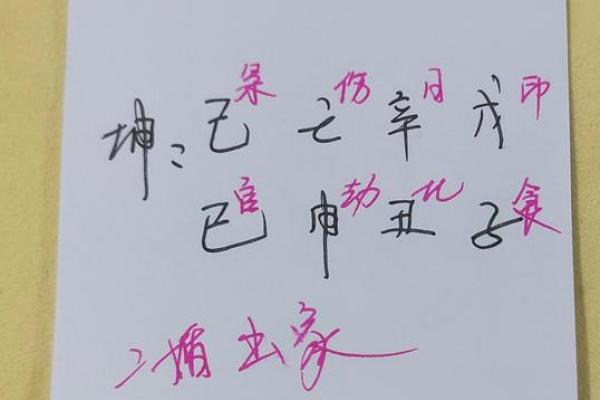 坤：己枭 壬伤 辛日 戊印
巳官 申劫 丑比 子食
二婚出家